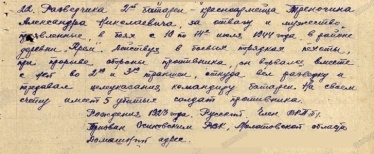 22. Разведчика 2ой батареи - красноармейца Треночина
Александра Николаевича, за отвагу и мужество,
проявленные в боях с 10 по 14ое июля 1944 года в районе
деревни Действуя в боевых порядках пехоты,
при прорыве обороны противника, он ворвался вместе
с ней во 2ю и 3ю траншеи, откуда вел разведку и
передавал целеуказания, командиру батареи. На своём
счету имеет 5 убитых солдат противника.
Рождения 1923 года. Русский. Член ВКП(б).
Призван Осинским РВК, Молотовской области
Домашний адрес